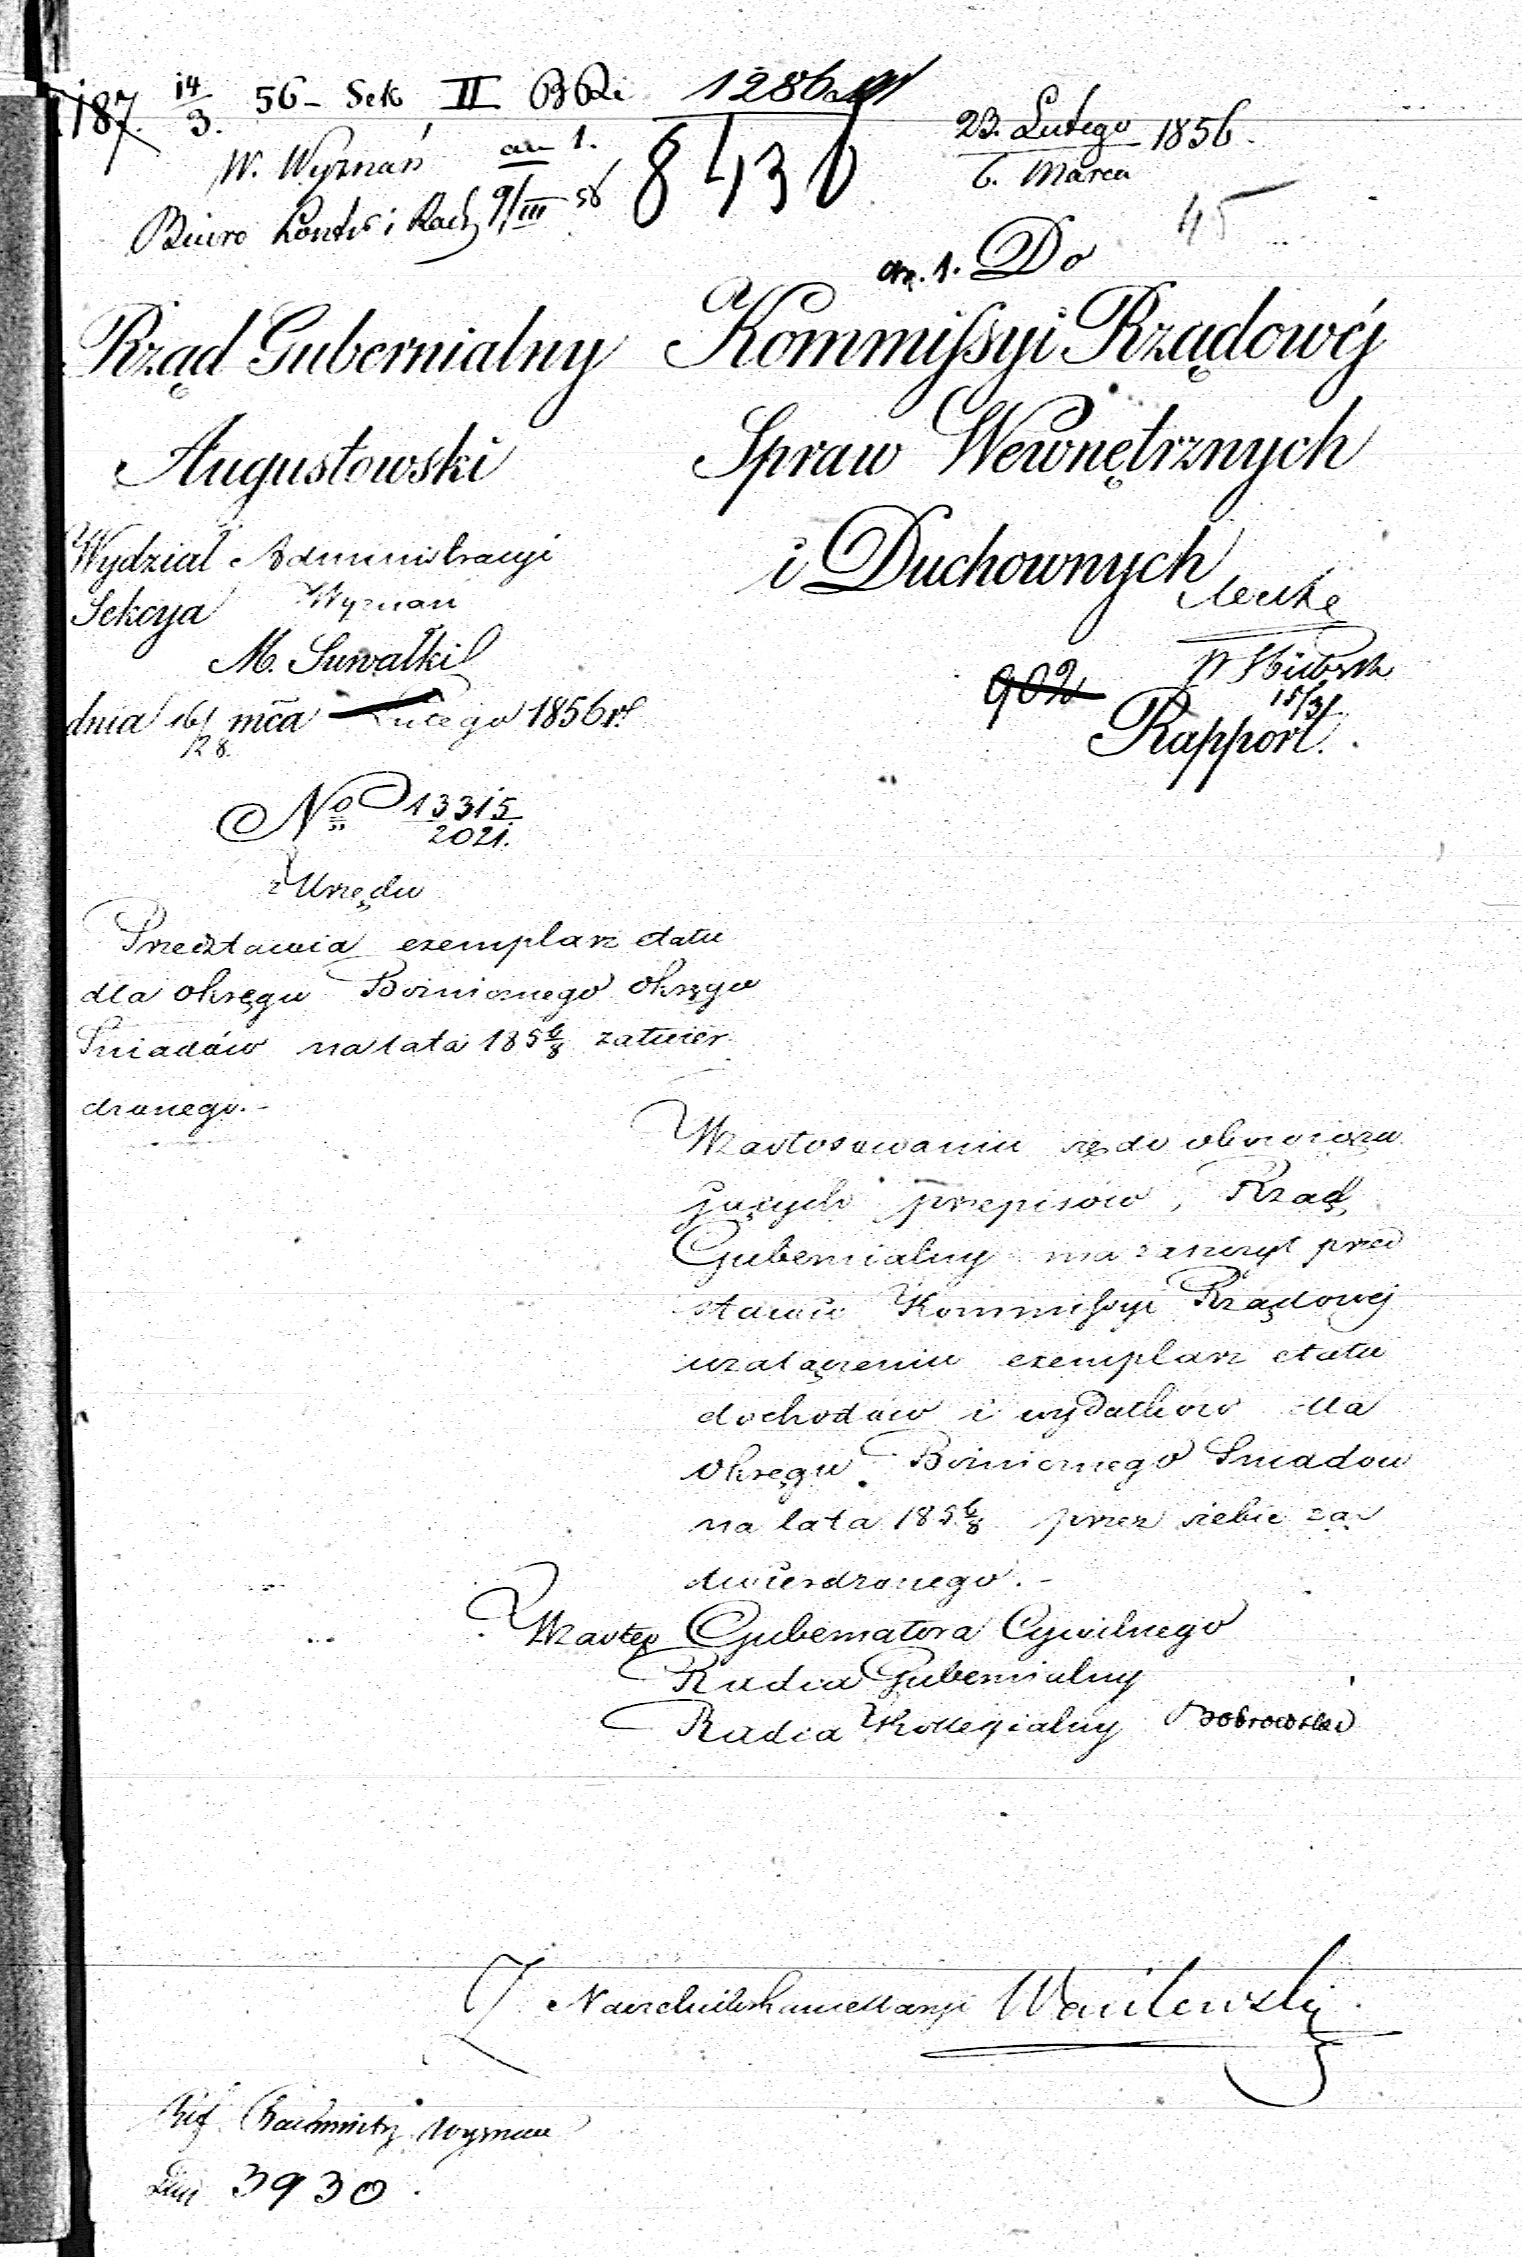 187. 14/3. 56 - Sek II B Ri 1286
W. Wyznań an 1. 8430
Biuro Kontr i Rach 9/III 56
23. Lutego / 6. Marca 1856.
45
an. 1. Do
Rząd Gubernialny
Augustowski
Kommissyi Rządowéj
Spraw Wewnętrznych
i Duchownych
Wydział Administracyi
Sekcya Wyznań
M. Suwałki
dnia 16/28 mca Lutego 1856 r.
902
15/3
Rapport.
No 13315/2021.
z Urzędu
Przedstawia exemplarz etatu
dla okręgu Bożnicznego okręgu
Sniadów na lata 1856/8 zatwier
dzonego.-
W zastosowaniu się do obowiązu
jących przepisów, Rząd
Gubernialny ma zaszczyt przed
stawić Kommissyi Rządowej
w załączeniu exemplarz etatu
dochodów i wydatków dla
okręgu Bożnicznego Sniadow
na lata 1856/8 przez siebie za
twierdzonego.-
W zastęp Gubernatora Cywilnego
Radca Gubernialny
Radca Kollegialny Dobrowolski
Naczelnik Kancellaryi Wasilewski
Wyznan
3930.